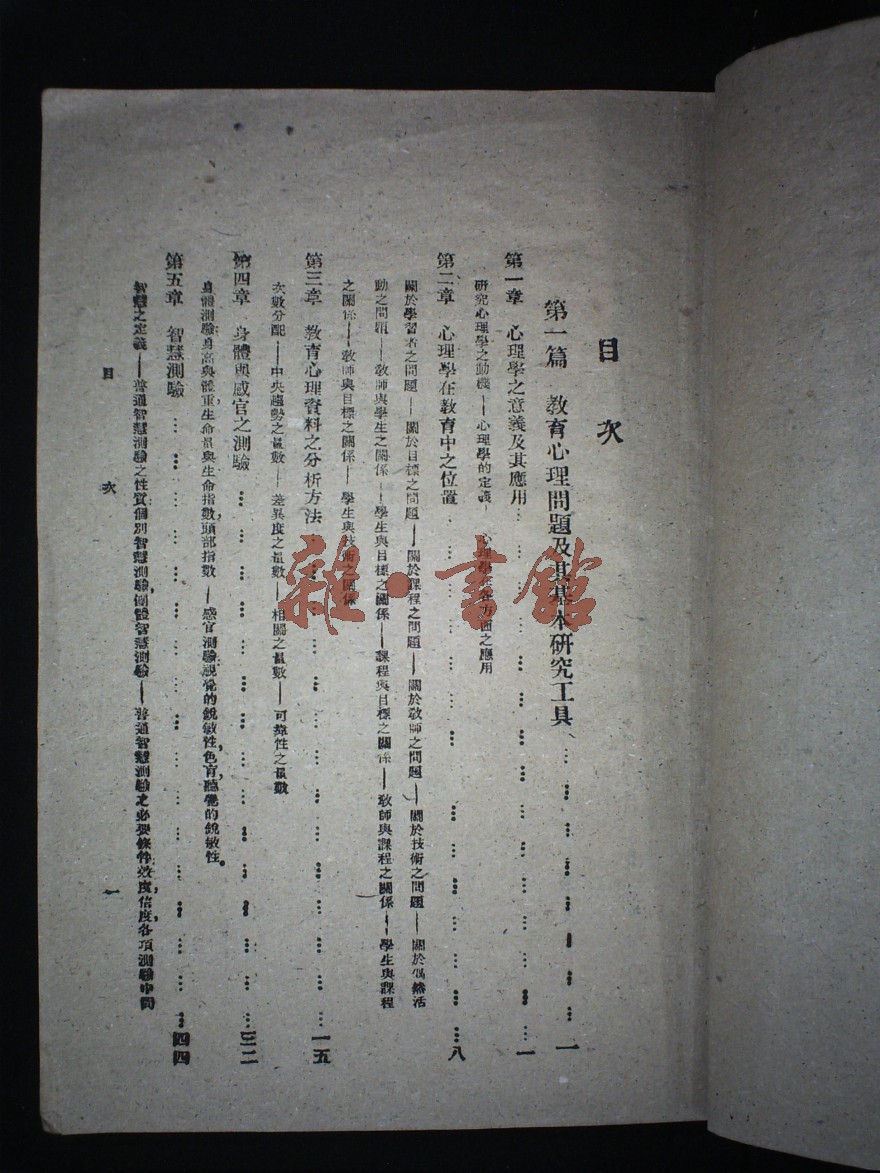 目次
第一篇 教育心理問題及其基本研究工具……一
第一章 心理學之意義及其應用……一
研究心理學之動機——心理學的定義——心理學在各方面之應用
第二章 心理學在教育中之位置……八
關於學習者之問題——關於目標之問題——關於課程之問題——關於教師之問題——關於技術之問題——關於偶然活
動之問題——教師與學生之關係——學生與目標之關係——課程與目標之關係——教師與課程之關係——學生與課程
之關係——教師與目標之關係——學生與技術之關係
第三章 教育心理資料之分析方法……一五
次數分配——中央趨勢之量數——差異度之量數——相關之量數——可靠性之量數
第四章 身體與感官之測驗……三二
身體測驗,身高與體重,生命量與生命指數,頭部指數——感官測驗,視覺的銳敏性,色盲,聽覺的銳敏性。
第五章 智慧測驗……四四
智慧之定義——普通智慧測驗之性質,個別智慧測驗,團體智慧測驗——普通智慧測驗之必要條件,效度,信度,各項測驗中間
目次 一
雜·書館